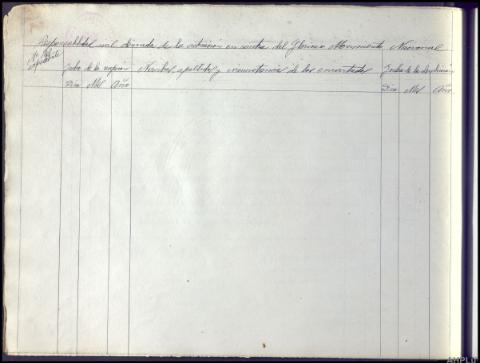 Responsabilidad civil dimada de la actuación en contra del Glorioso Movimiento Nacional
Nº del
expediente
Fecha de la
Nombres, apellidos y circunstancias de los encartados
Fecha de la
Día Mes Año
Día Mes Año